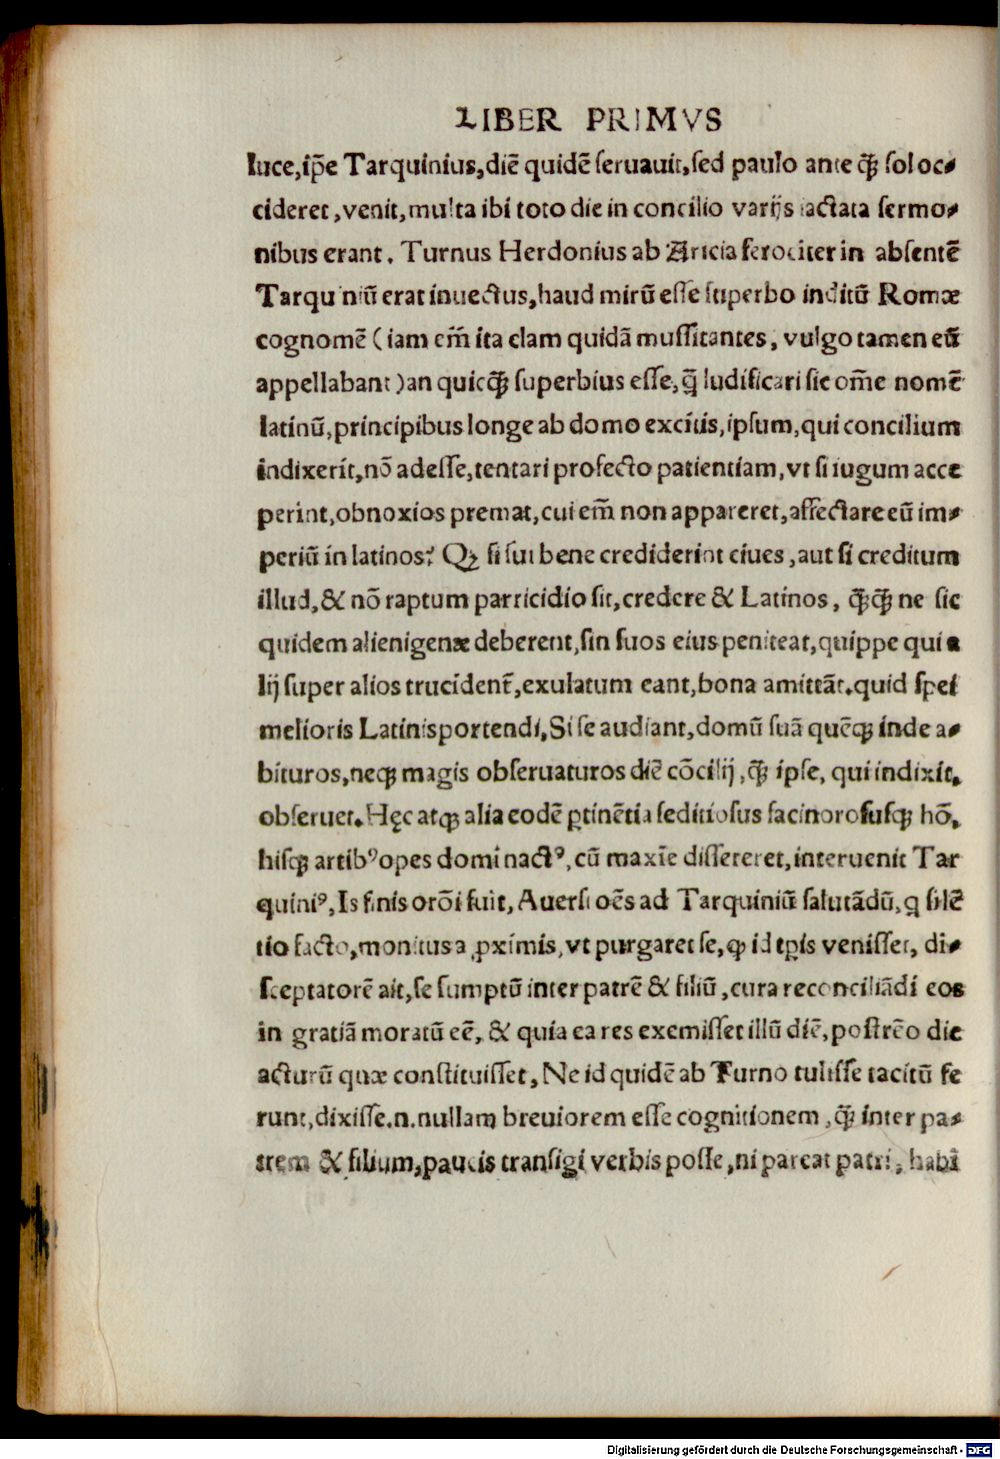 LIBER PRIMVS
luce,ip̃e Tarquinius,diē quidē seruauit,sed paulo ante q̃ꝫ sol oc⸗
cideret,venit,multa ibi toto die in concilio varijs iactata sermo⸗
nibus erant. Turnus Herdonius ab Aricia ferociter in absentē
Tarquiniū erat inuectus,haud mirū esse superbo inditū Romæ
cognomē (iam em̃ ita clam quidā mussitantes, vulgo tamen eū
appellabant)an quicq̃ꝫ superbius esse,q̃ ludificari sic om̃e nomē
latinū,principibus longe ab domo excitis,ipsum,qui concilium
indixerit,nō adesse,tentari profecto patientiam,vt si iugum acce
perint,obnoxios premat,cui em̃ non appareret,affectare eū im⸗
periū in latinos? Qꝫ si sui bene crediderint ciues,aut si creditum
illud,& nō raptum parricidio sit,credere & Latinos, q̃ꝫq̃ꝫ ne sic
quidem alienigenæ deberent,sin suos eius peniteat,quippe qui a
lij super alios trucident̃,exulatum eant,bona amittāt.quid spei
melioris Latinis portendi,Si se audiant,domū suā quēqꝫ inde a⸗
bituros,neqꝫ magis obseruaturos diē cōcilij,q̃ꝫ ipse, qui indixit,
obseruet.Hęc atqꝫ alia eodē ꝑtinētia seditiosus facinorosusqꝫ hō,
hisqꝫ artibꝰ opes domi nactꝰ,cū maxīe dissereret,interuenit Tar
quiniꝰ,Is finis orōi fuit,Auersi oēs ad Tarquiniū salutādū,q silē
tio facto,monitus a ꝓximis,vt purgaret se,ꝙ id tꝑis venisset, di⸗
sceptatorē ait,se sumptū inter patrē & filiū,cura reconciliādi eos
in gratiā moratū eē,& quia ea res exemisset illū diē,postrēo die
acturū quæ constituisset, Ne id quidē ab Turno tulisse tacitū fe
runt,dixisse.n.nullam breuiorem esse cognitionem,q̃ꝫ inter pa⸗
trem & filium,paucis transigi verbis posse,ni pareat patri, habī
Digitalisierung gefördert durch die Deutsche Forschungsgemeinschaft - DFG